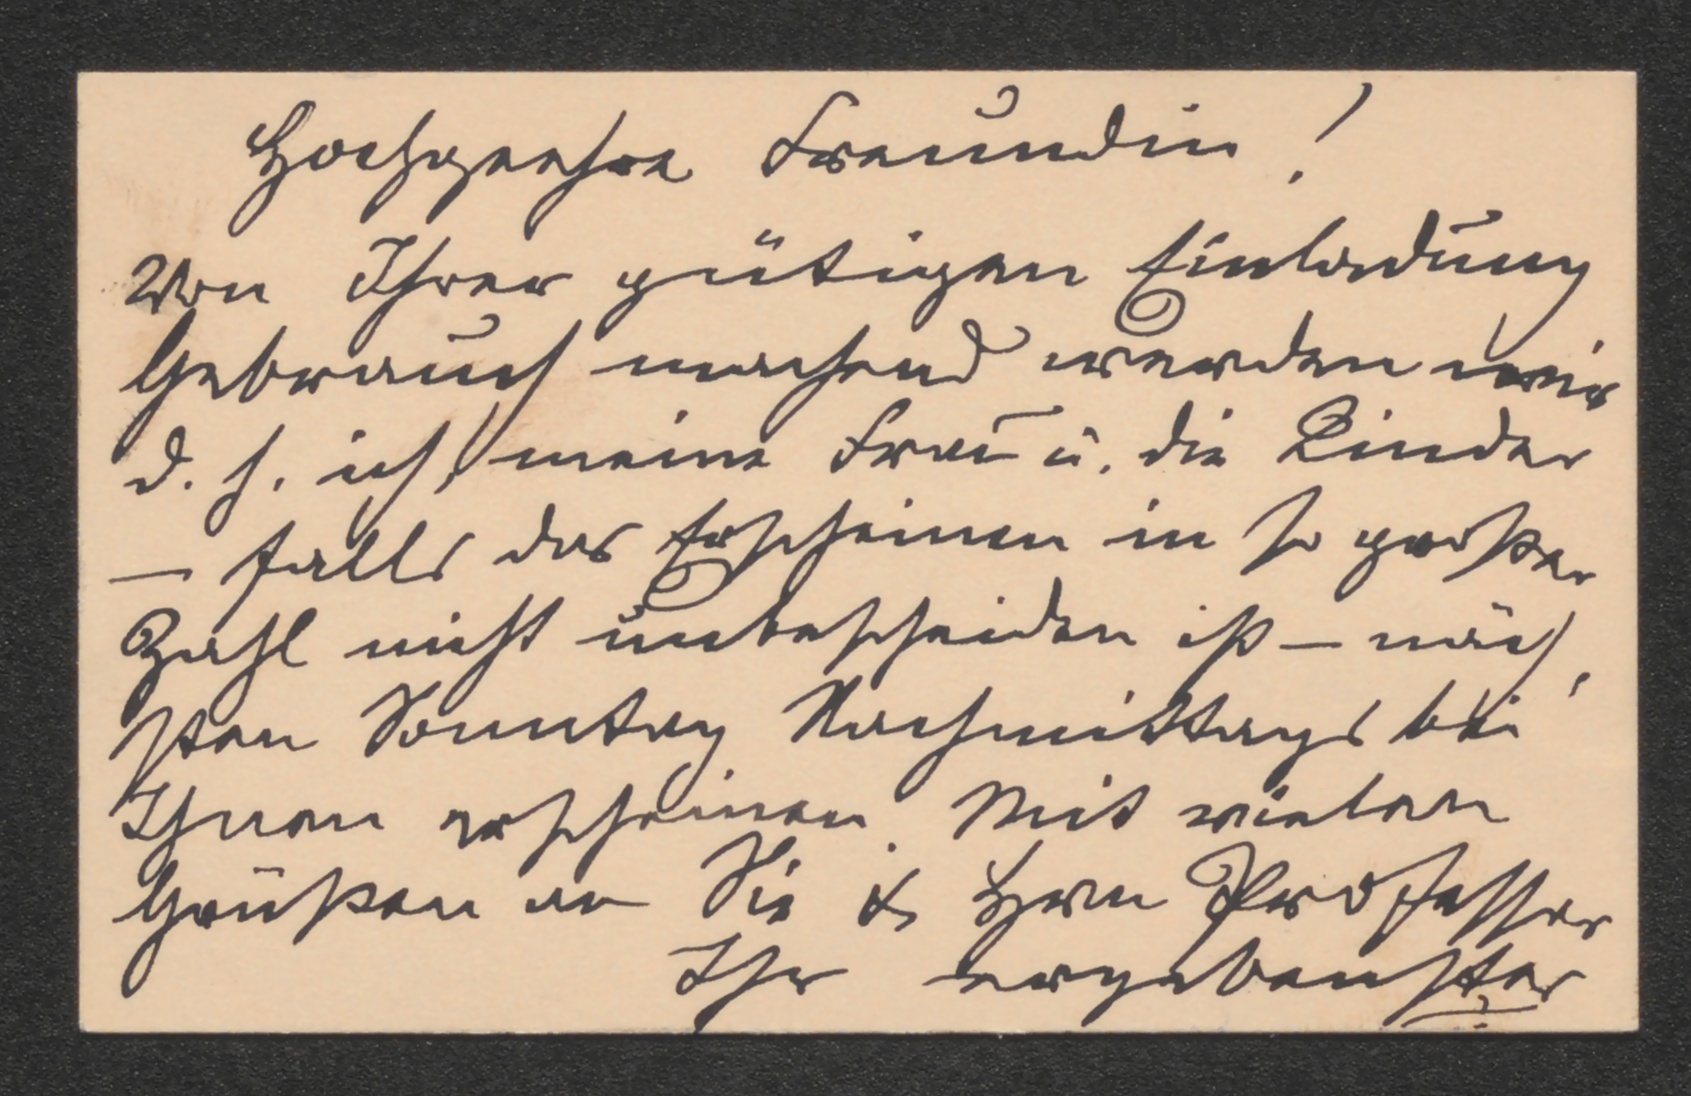 Hochgeehrte Freundin!
Von Ihrer gütigen Einladung
Gebrauch machend werden wir
d. h. ich, meine Frau u. die Kinder
— falls das Erscheinen in so großer
Zahl nicht unbescheiden ist — näch,
sten Sonntag Nachmittags bei
Ihnen erscheinen. Mit vielen
Grüßen an Sie & Hrn Professor
Ihr ergebenster